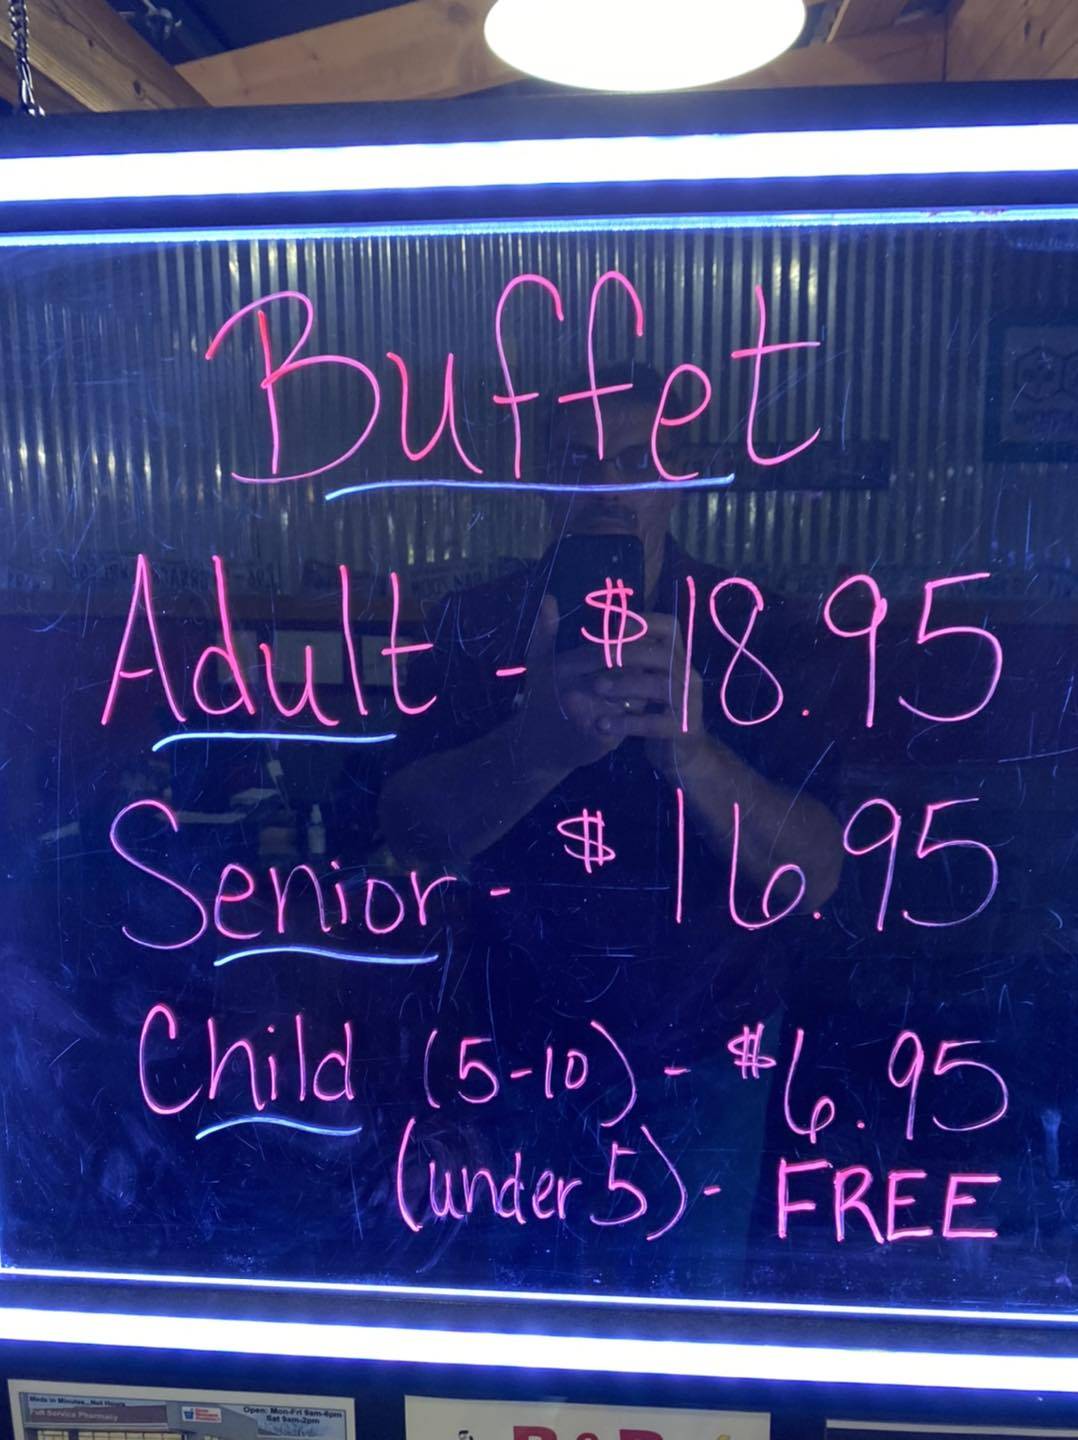 Buffet
Adult - $18.95
Senior - $16.95
Child (5-10) - $6.95
(under 5) - FREE
Meds in Minutes...Not Hours
Full Service Pharmacy
Open: Mon-Fri 9am-6pm
Sat 9am-2pm